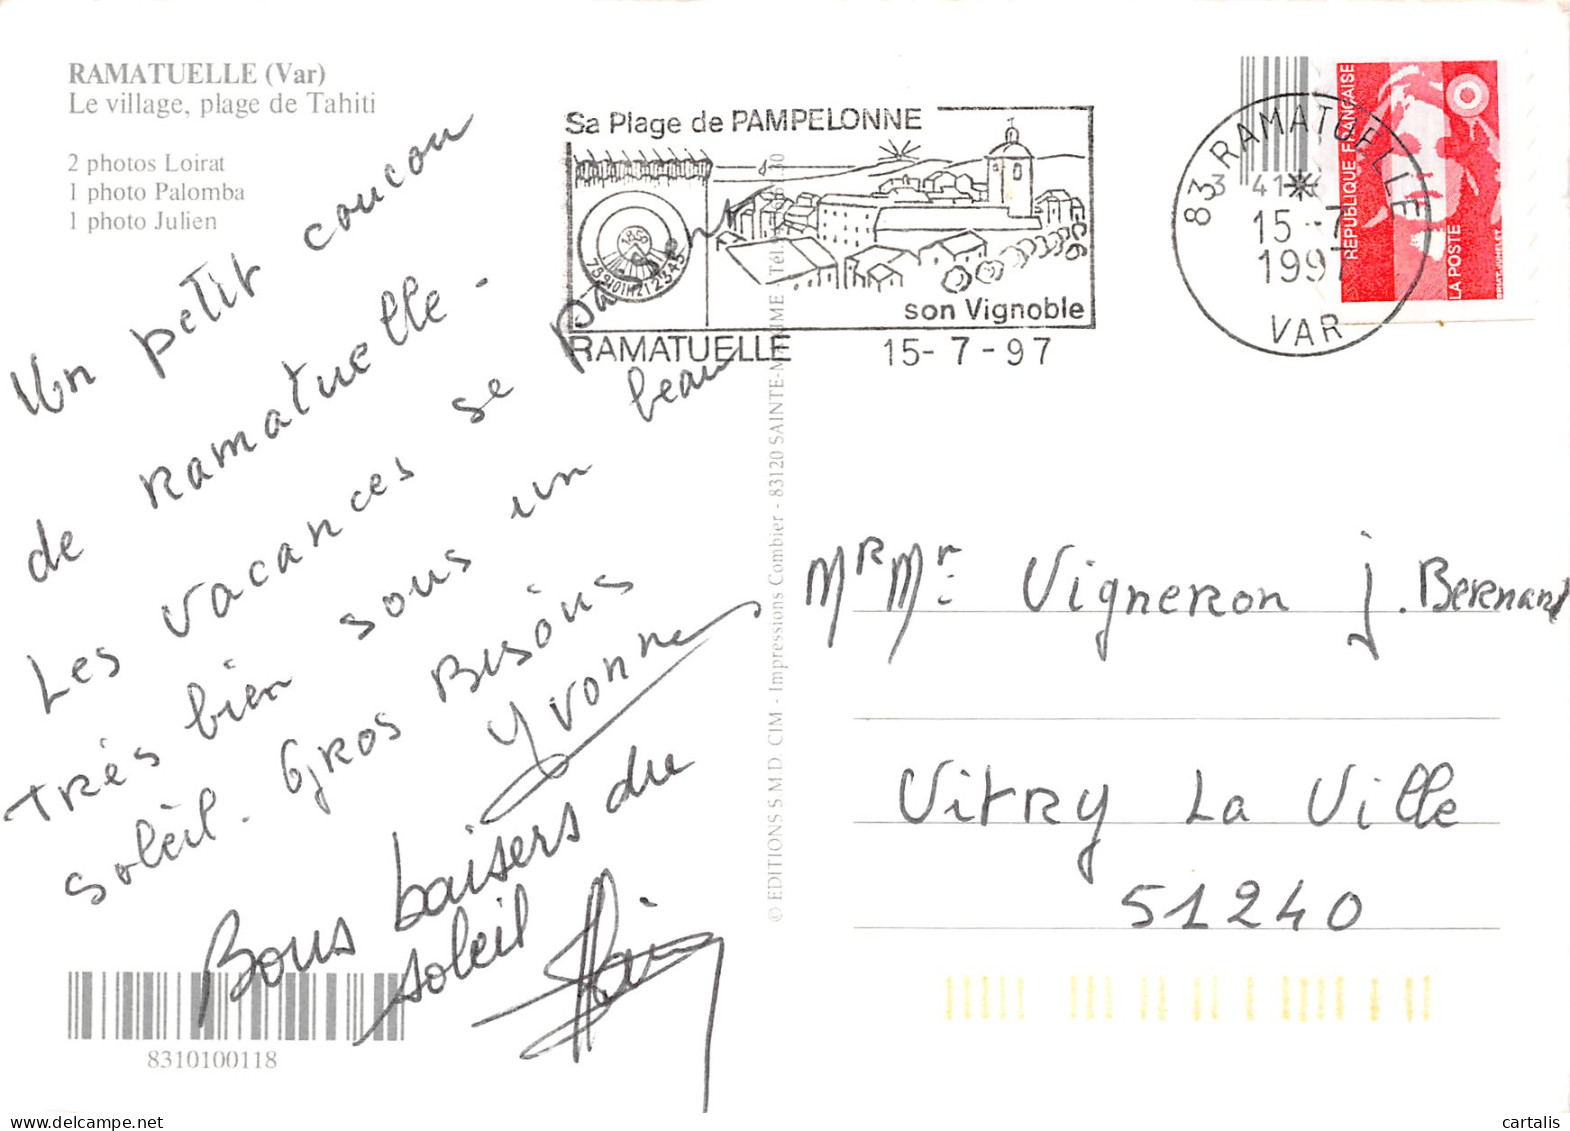 RAMATUELLE (Var)
Le village, plage de Tahiti
2 photos Loirat
1 photo Palomba
1 photo Julien
Un petit coucou
de Ramatuelle.
Les vacances se passent
très bien sous un beau
soleil. Gros Bisous
Yvonne
Bons baisers du
soleil
8310100118
© EDITIONS S.M.D. CIM - Impressions Combier - 83120 SAINTE-MAXIME - Tél.
Sa Plage de PAMPELONNE
son Vignoble
RAMATUELLE 15-7-97
83 RAMATUELLE
15-7
1997
VAR
REPUBLIQUE FRANÇAISE
LA POSTE
Mr Mr Vigneron J. Bernard
Vitry La Ville
51240
cartalis
delcampe.net